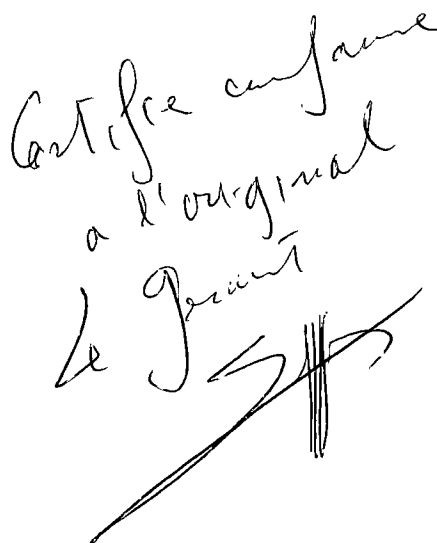 Certifie conforme
a l'original
Le Gerant